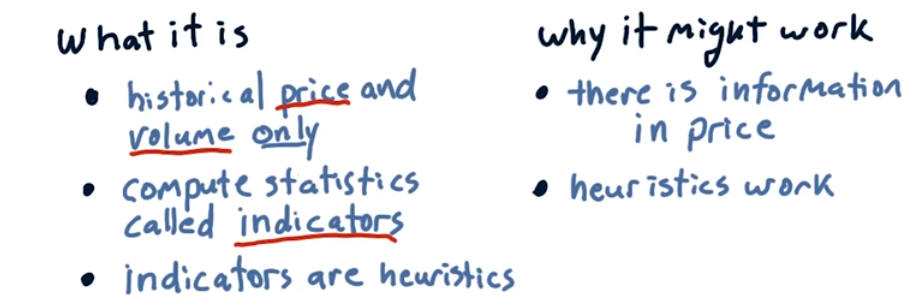 what it is
• historical price and
volume only
• compute statistics
called indicators
• indicators are heuristics
why it might work
• there is information
in price
• heuristics work